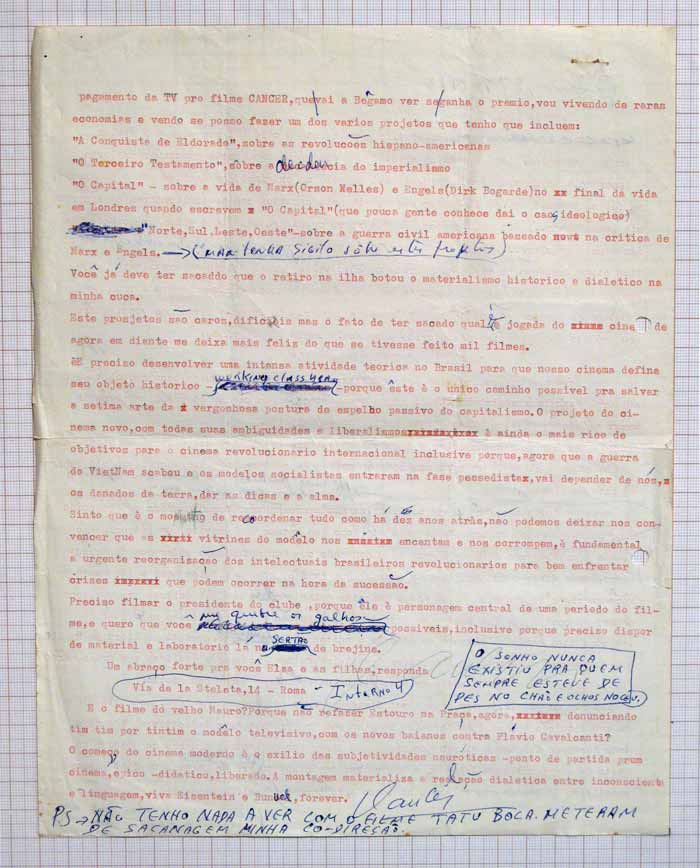 pagamento da TV pro filme CANCER,quevai a Bêgamo ver seganha o premio,vou vivendo de raras
economias e vendo se posso fazer um dos varios projetos que tenho que incluem:
"A Conquista de Eldorado",sobre as revolucões hispano-americanas
"O Terceiro Testamento",sôbre a decadencia do imperialismo
"O Capital" - sobre a vida de Marx(Orson Welles) e Engels(Dirk Bogarde)no xx final da vida
em Londres quando escrevem x "O Capital"(que pouca gente conhece dai o caos ideologico)
"Norte,Sul,Leste,Oeste"-sobre a guerra civil americana baseado na critica de
Marx e Engels. → (mantenha sigilo sôbre estes projetos)
Você já deve ter sacaddo que o retiro na ilha botou o materialismo historico e dialetico na
minha cuca.
Este prosjetos são caros,dificeis mas o fato de ter sacado qual é jogada do cine de
agora em diante me deixa mais feliz do que se tivesse feito mil filmes.
èE preciso desenvolver uma intensa atividade teorica no Brasil para que nosso cinema defina
seu objeto historico - working class hero -porque êste é o unico caminho possivel pra salvar
a setima arte da x vergonhosa postura de espelho passivo do capitalismo.O projeto do ci-
nema novo,com todas suas ambiguidades e liberalismos é ainda o mais rico de
objetivos para o cinema revolucionario internacional inclusive porque,agora que a guerra
do VietNam acabou e os modelos socialistas entraram na fase pecsedista,vai depender de nós,x
os danados da terra,dar as dicas e a alma.
Sinto que é o momento de recoordenar tudo como há dez anos atrás,não podemos deixar nos con-
vencer que as vitrines do modêlo nos encantam e nos corrompem,é fundamental
a urgente reorganização dos intelectuais brasileiros revolucionarios para bem enfrentar
crises que podem ocorrer na hora da sucessão.
Preciso filmar o presidente do clube ,porque êle é personagem central de uma periodo do fil-
me,e quero que você me quebre os galhos possiveis,inclusive porque preciso dispor
de material e laboratorio lá no SERTÃO de brejine.
Um abraço forte pra você Elza e as filhas,responda
Via de la Steleta,14 - Roma - INTERNO 4
O SONHO NUNCA
EXISTIU PRA QUEM
SEMPRE ESTEVE DE
PES NO CHÃO E OLHOS NO CEU.
E o filme do velho Mauro?Porque não refazer Estouro na Praça,agora, denunciando
tim tim por tintim o modêlo televisivo,com os novos baianos contra Flávio Cavalcanti?
O começo do cinema moderno é o exilio das subjetividades neuróticas -ponto de partida prum
cinema,epico -didatico,liberado.A montagem materializa a relação dialetica entre inconsciente
e linguagem,viva Eisentein e Bunuel,forever.
PS → NÃO TENHO NADA A VER COM O FILME TATU BOLA. METERAM
DE SACANAGEM MINHA CO-DIREÇÃO.